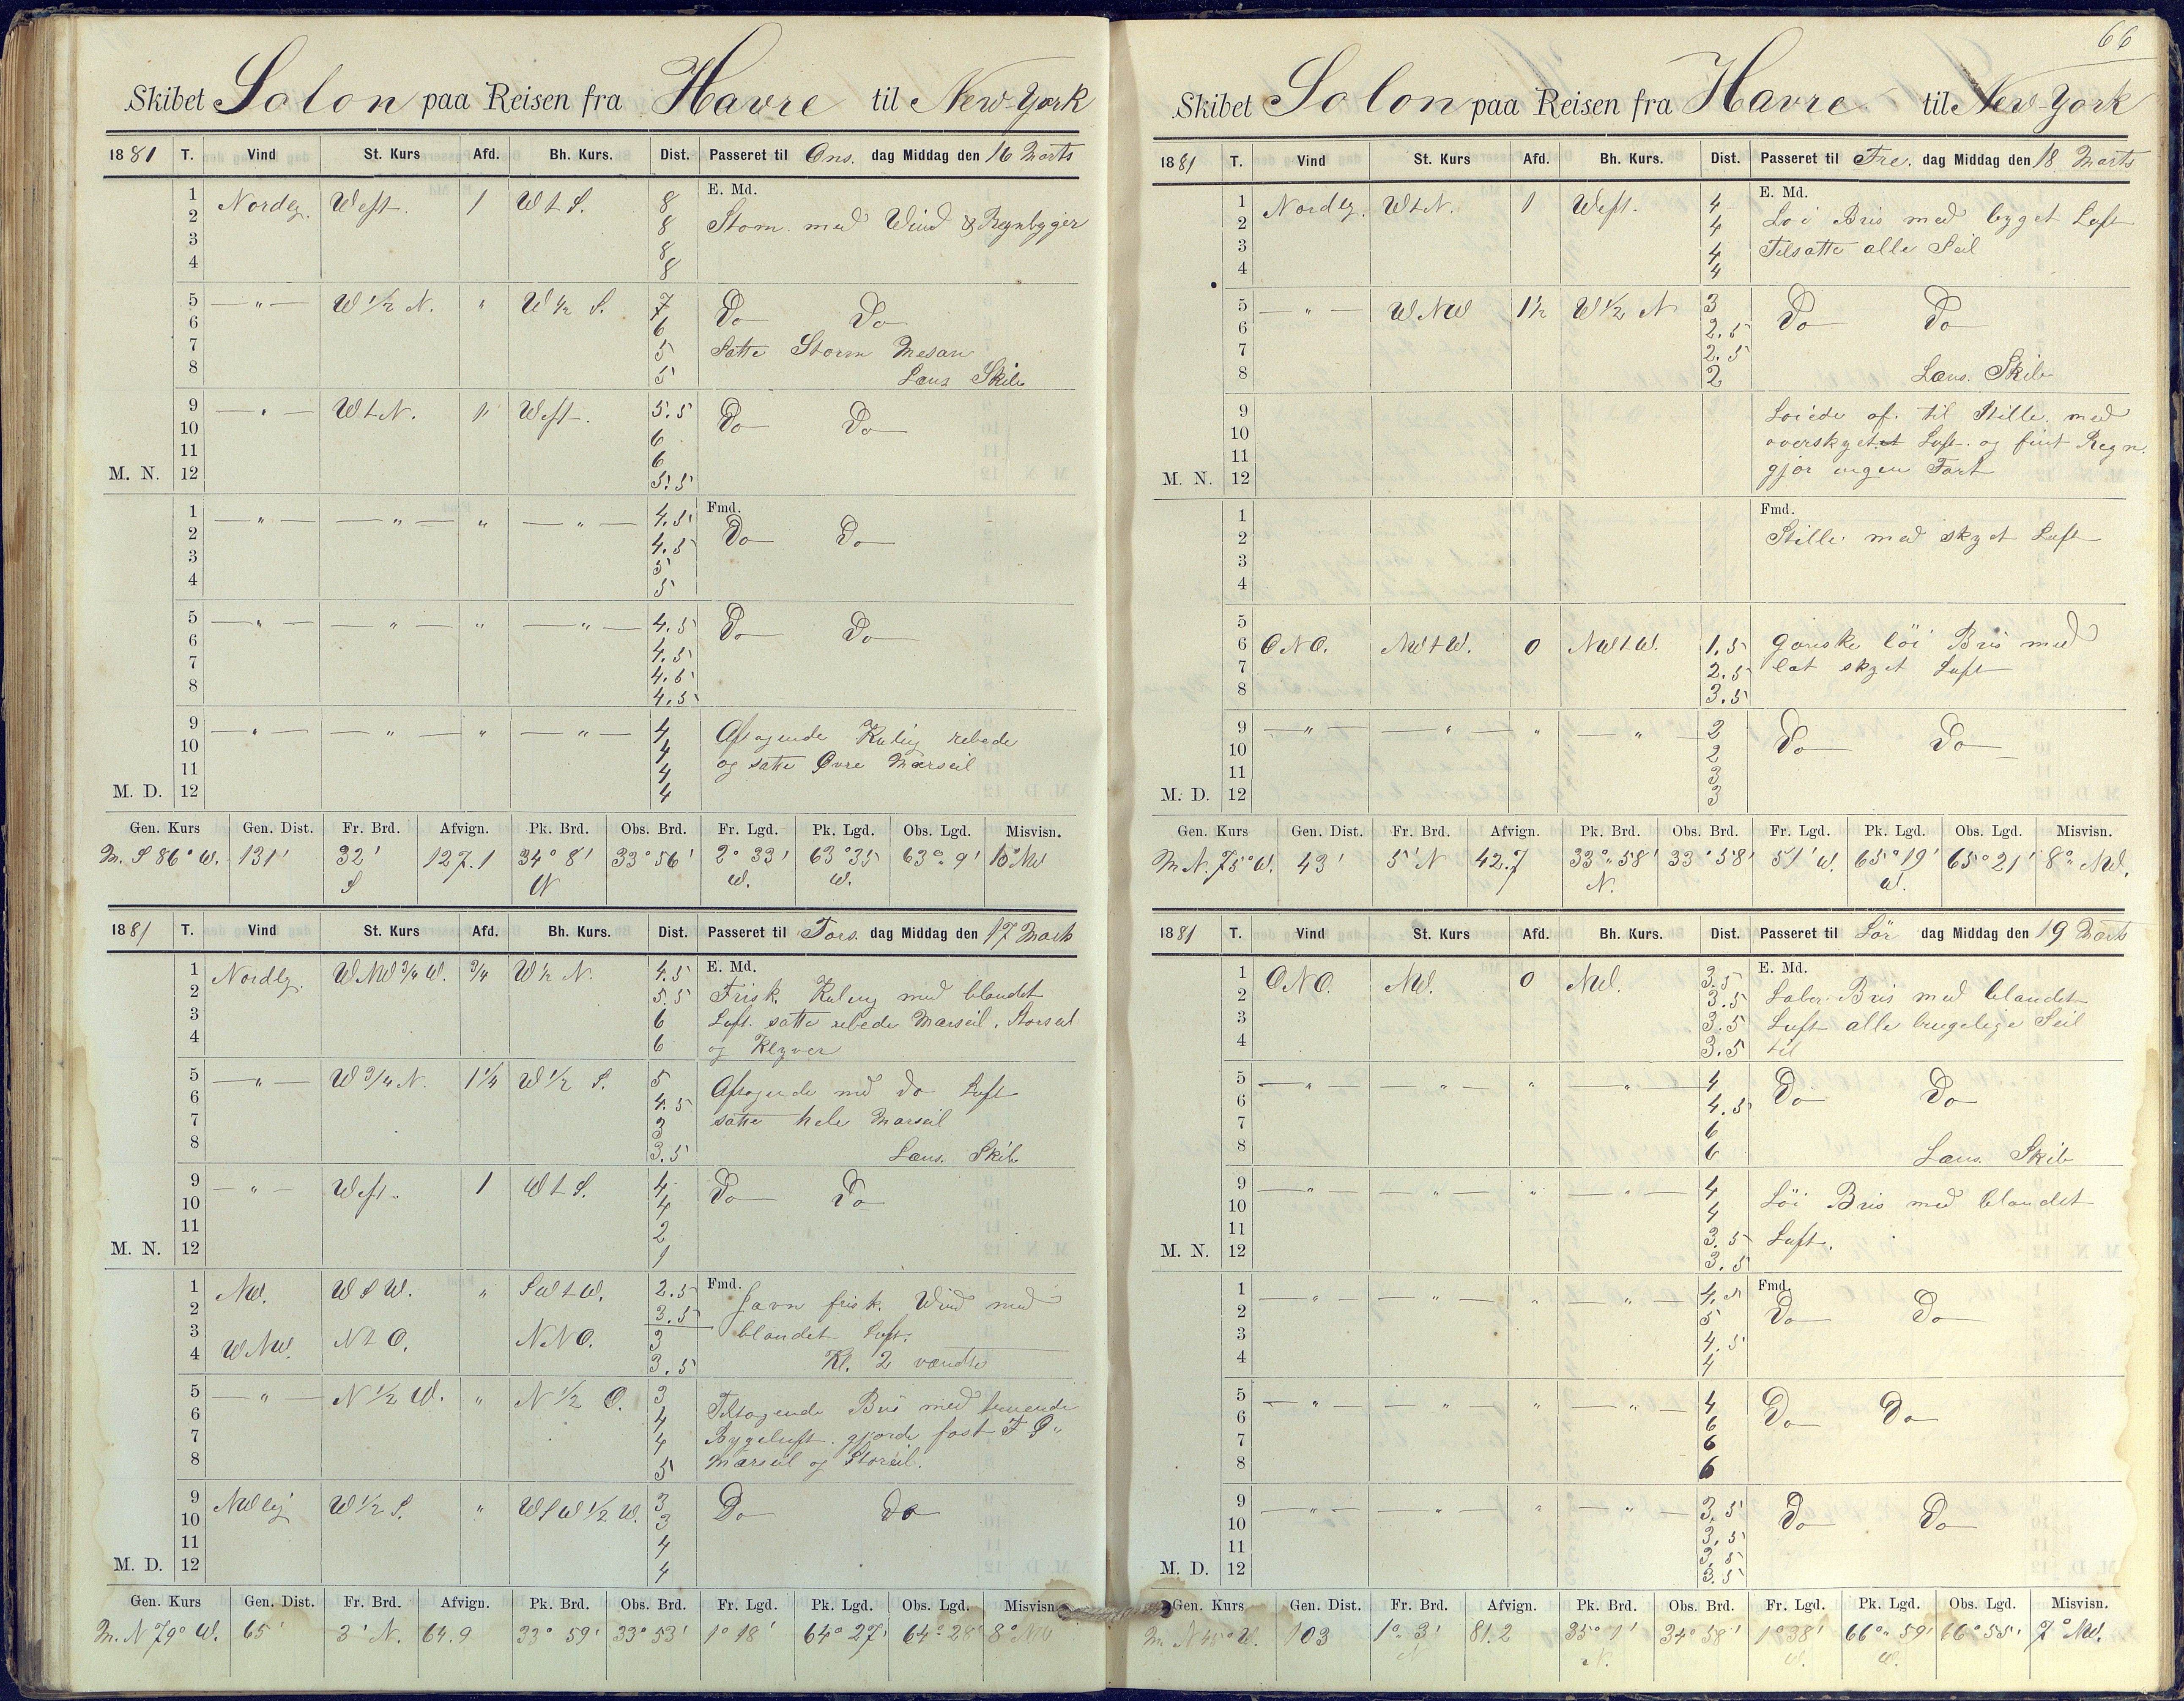 Skibet Solon paa Reisen fra Havre til New-York
1881 T. Vind St. Kurs Afd. Bh. Kurs. Dist. Passeret til Ons. dag Middag den 16 Marts
E. Md.
1 Nordlg. West. 1 W t S. 8 Storm med Wind & Regnbyger
2 8
3 8
4 8
5 — " — W ½ N. " W ½ S. 7 Do Do
6 6
7 5 Satte Storm Mesan
8 5 Læns Skib
9 — " — W t N. 1 West. 5.5 Do Do
10 6
11 6
M. N. 12 5.5
Fmd.
1 — " — — " — " — " — 4.5 Do Do
2 4.5
3 5
4 5
5 — " — — " — " — " — 4.5 Do Do
6 4.5
7 4.5
8 4.5
9 — " — — " — " — " — 4 Aftagende Kuling rebede
10 4
11 4 og satte Øvre Mærseil
M. D. 12 4
Gen. Kurs Gen. Dist. Fr. Brd. Afvign. Pk. Brd. Obs. Brd. Fr. Lgd. Pk. Lgd. Obs. Lgd. Misvisn.
M. S 86° W. 131' 32' S 127.1 34° 8' N 33° 56' 2° 33' W. 63° 35 W. 63° 9' 10° NW
1881 T. Vind St. Kurs Afd. Bh. Kurs. Dist. Passeret til Tors. dag Middag den 17 Marts
E. Md.
1 Nordlg. WNW ¾ W. ¾ W ½ N. 4.5 Frisk Kuling med blandet
2 5.5
3 6 Luft. satte rebede Mærseil, Storseil
4 6 og Klyver
5 — " — W ¾ N. 1¼ W ½ S. 5 Aftagende med do Luft
6 4.5
7 3 satte hele Mærseil
8 3.5 Læns. Skib
9 — " — West. 1 W t S. 4 Do Do
10 4
11 2
M. N. 12 1
Fmd.
1 NW. W S W. " SW t W. 2.5 Jævn frisk Wind med
2 3.5 blandet Luft.
3 WNW. N t O. NNO. 3
4 3.5 Kl. 2 vendte
5 — " — N ½ W. " N ½ O. 3 Tiltagende Bris med truende
6 4
7 4 Bygeluft. gjorde fast F Ø.
8 5 Mærseil og Storseil.
9 NWlig W ½ S. " WSW ½ W. 3 Do Do
10 3
11 4
M. D. 12 4
Gen. Kurs Gen. Dist. Fr. Brd. Afvign. Pk. Brd. Obs. Brd. Fr. Lgd. Pk. Lgd. Obs. Lgd. Misvisn.
M. N 79° W. 65' 3' N. 64.9 33° 59' 33° 53' 1° 18' 64° 27' 64° 28' 8° NW
66
Skibet Solon paa Reisen fra Havre til New-York
1881 T. Vind St. Kurs Afd. Bh. Kurs. Dist. Passeret til Fre. dag Middag den 18 Marts
E. Md.
1 Nordlg. W t N. 1 West. 4 Løi Bris med byget Luft
2 4
3 4 Tilsatte alle Seil
4 4
5 — " — WNW 1½ W ½ N 3 Do Do
6 2.5
7 2.5
8 2 Læns. Skib
9 Løiede af til Stille. med
10 overskyet Luft. og fint Regn.
11 gjør ingen Fart
M. N. 12
Fmd.
1 Stille med skyet Luft
2
3
4
5
6 ONO. NW t W. 0 NW t W. 1.5 ganske løi Bris med
7 2.5 let skyet Luft
8 3.5
9 — " — — " — " " 2 Do Do
10 2
11 3
M. D. 12 3
Gen. Kurs Gen. Dist. Fr. Brd. Afvign. Pk. Brd. Obs. Brd. Fr. Lgd. Pk. Lgd. Obs. Lgd. Misvisn.
M. N. 75° W. 43' 5' N 42.7 33° 58' N. 33° 58' 51' W. 65° 19' W. 65° 21' 8° NW.
1881 T. Vind St. Kurs Afd. Bh. Kurs. Dist. Passeret til Lør dag Middag den 19 Marts
E. Md.
1 ONO. NW. 0 NW. 3.5 Laber Bris med blandet
2 3.5
3 3.5 Luft alle brugelige Seil
4 3.5 til
5 — " — — " — " — " — 4 Do Do
6 4.5
7 6
8 6 Læns. Skib
9 — " — — " — " — " — 4 Løi Bris med blandet
10 4
11 3.5 Luft.
M. N. 12 3.5
Fmd.
1 — " — — " — " — " — 4.5 Do Do
2 5
3 4.5
4 4
5 — " — — " — " — " — 4 Do Do
6 6
7 6
8 6
9 — " — — " — " — " — 3.5 Do Do
10 3.5
11 3.5
M. D. 12 3.5
Gen. Kurs Gen. Dist. Fr. Brd. Afvign. Pk. Brd. Obs. Brd. Fr. Lgd. Pk. Lgd. Obs. Lgd. Misvisn.
M. N W. 103 1° 3' N 81.2 35° 1' N. 34° 58' 1° 38' W. 66° 59' W. 66° 55' 7° NW.